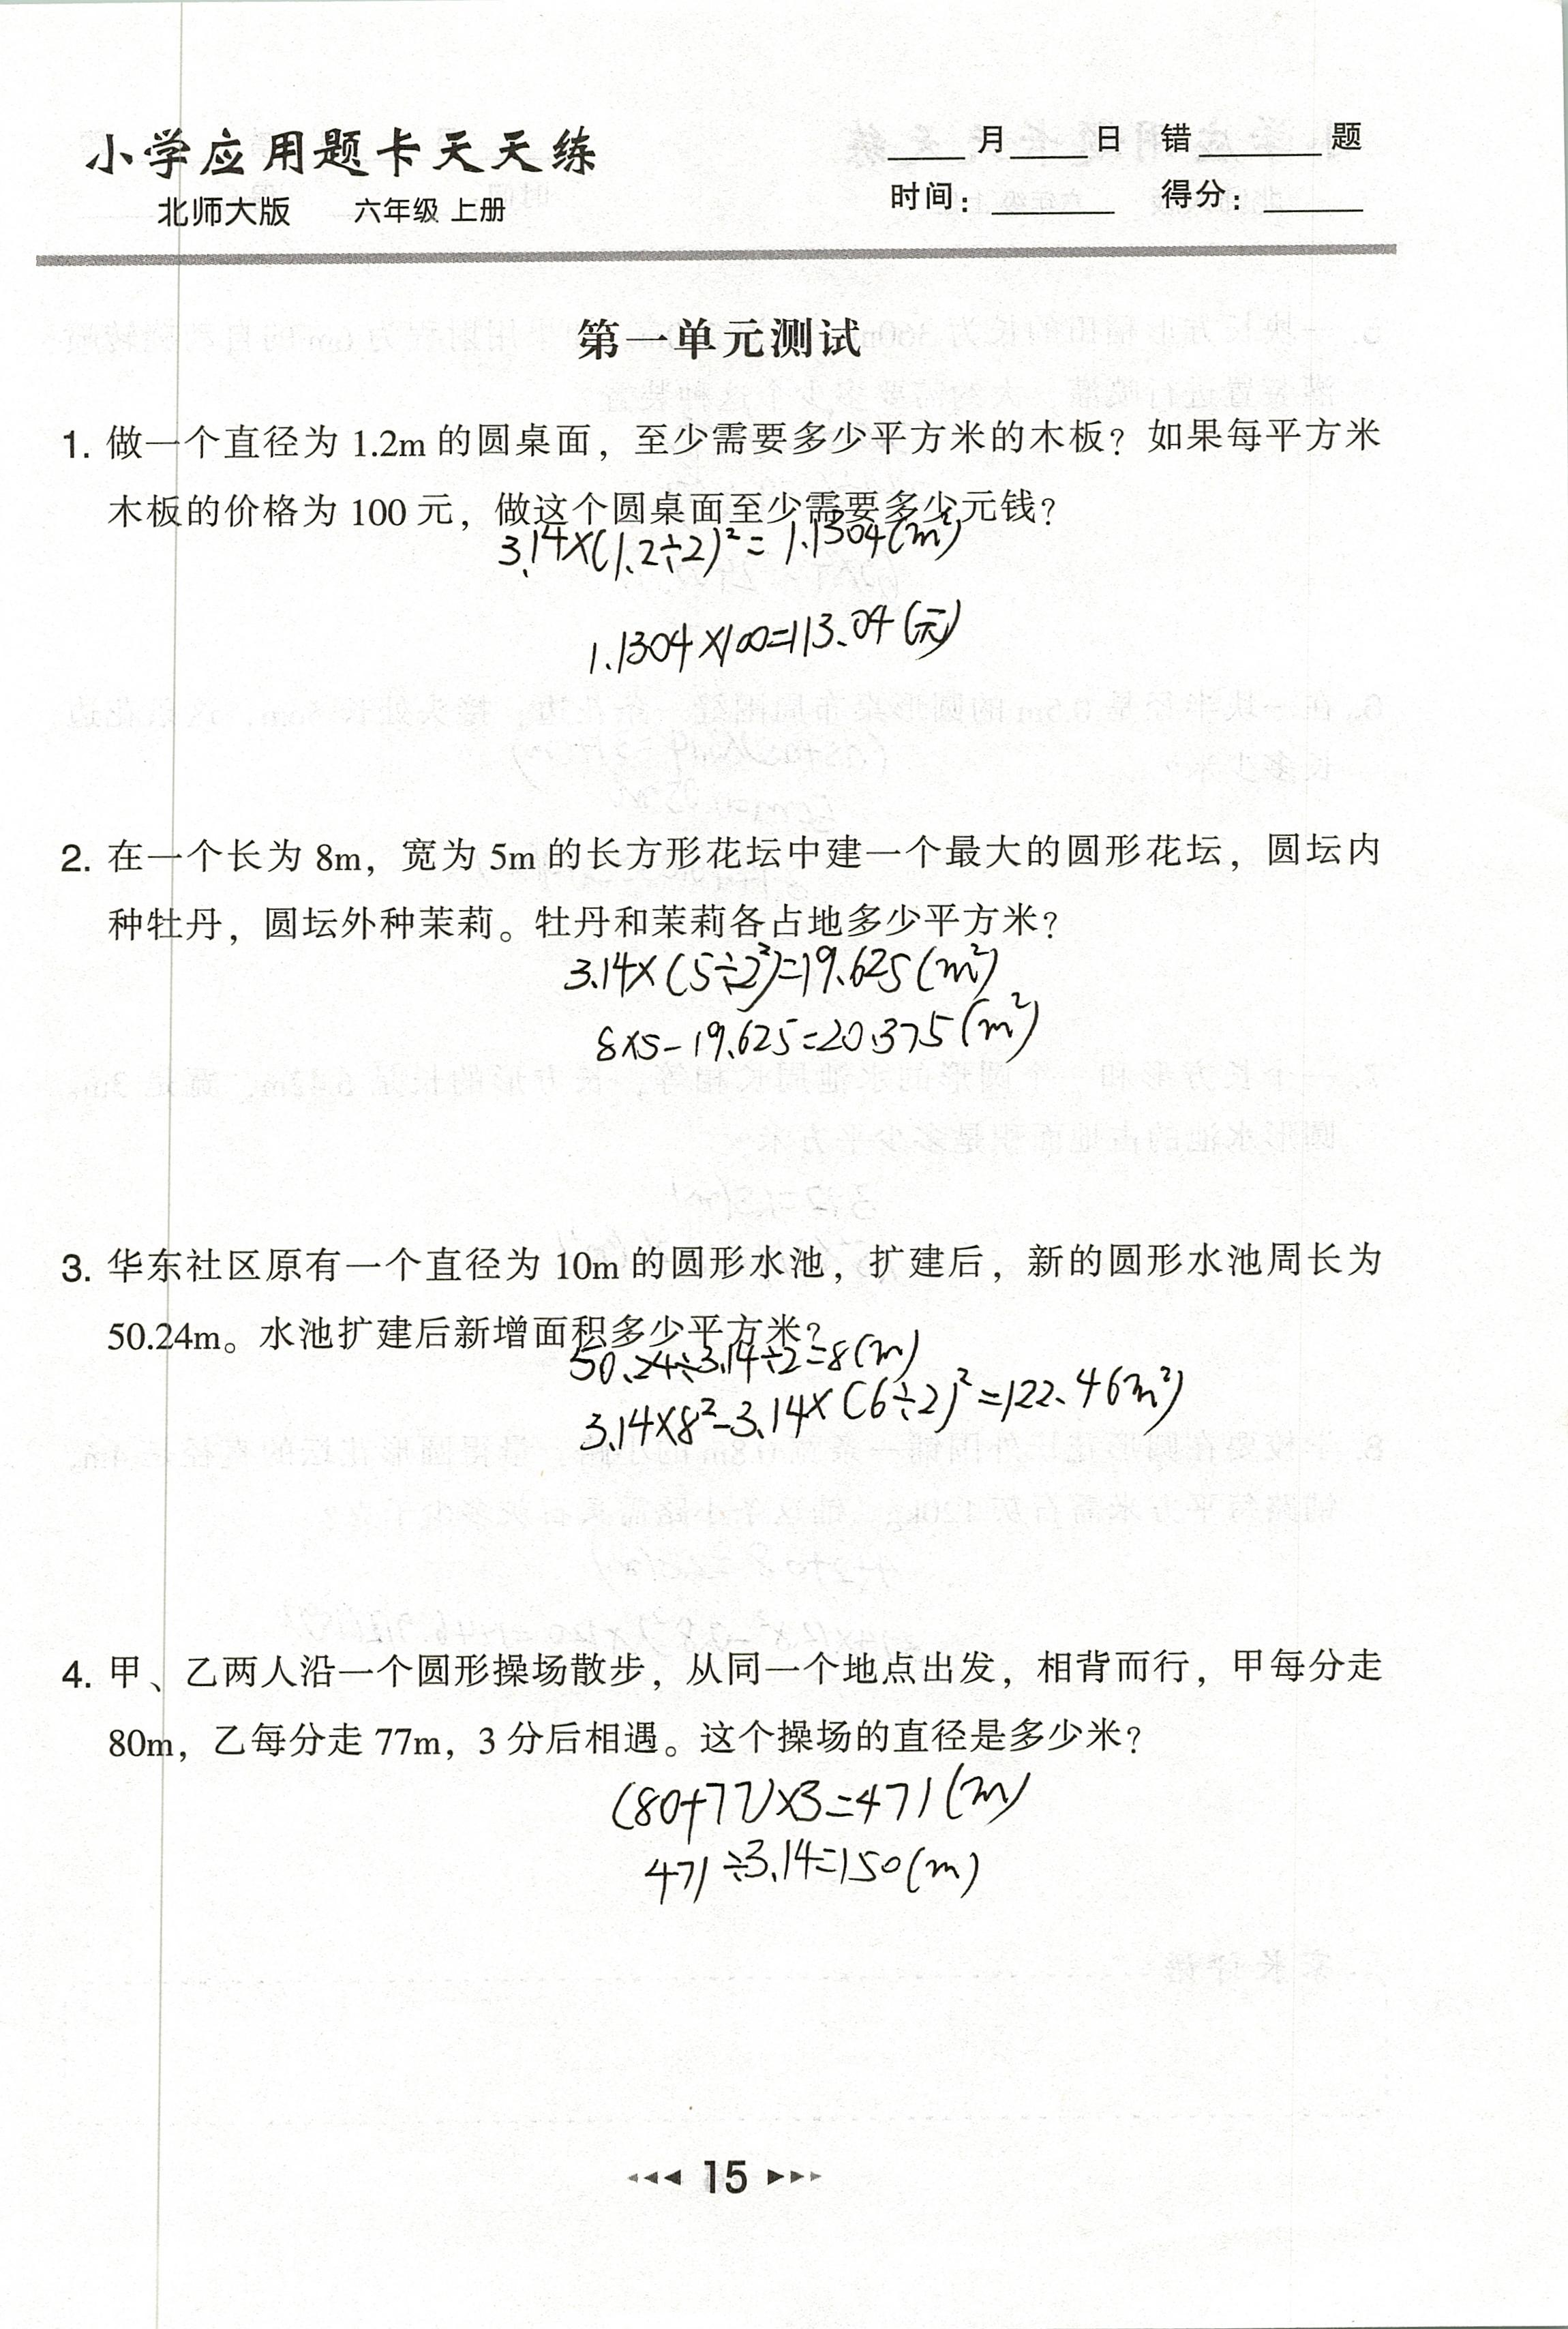 小学应用题卡天天练
北师大版 六年级 上册
____月____日 错______题
时间：______ 得分：_____
第一单元测试
1. 做一个直径为 1.2m 的圆桌面，至少需要多少平方米的木板？如果每平方米
木板的价格为 100 元，做这个圆桌面至少需要多少元钱？
3.14×(1.2÷2)²=1.1304(m²)
1.1304×100=113.04(元)
2. 在一个长为 8m，宽为 5m 的长方形花坛中建一个最大的圆形花坛，圆坛内
种牡丹，圆坛外种茉莉。牡丹和茉莉各占地多少平方米？
3.14×(5÷2²)=19.625(m²)
8×5-19.625=20.375(m²)
3. 华东社区原有一个直径为 10m 的圆形水池，扩建后，新的圆形水池周长为
50.24m。水池扩建后新增面积多少平方米？
50.24÷3.14÷2=8(m)
3.14×8²-3.14×(6÷2)²=122.46m²)
4. 甲、乙两人沿一个圆形操场散步，从同一个地点出发，相背而行，甲每分走
80m，乙每分走 77m，3 分后相遇。这个操场的直径是多少米？
(80+77)×3=471(m)
471÷3.14=150(m)
15